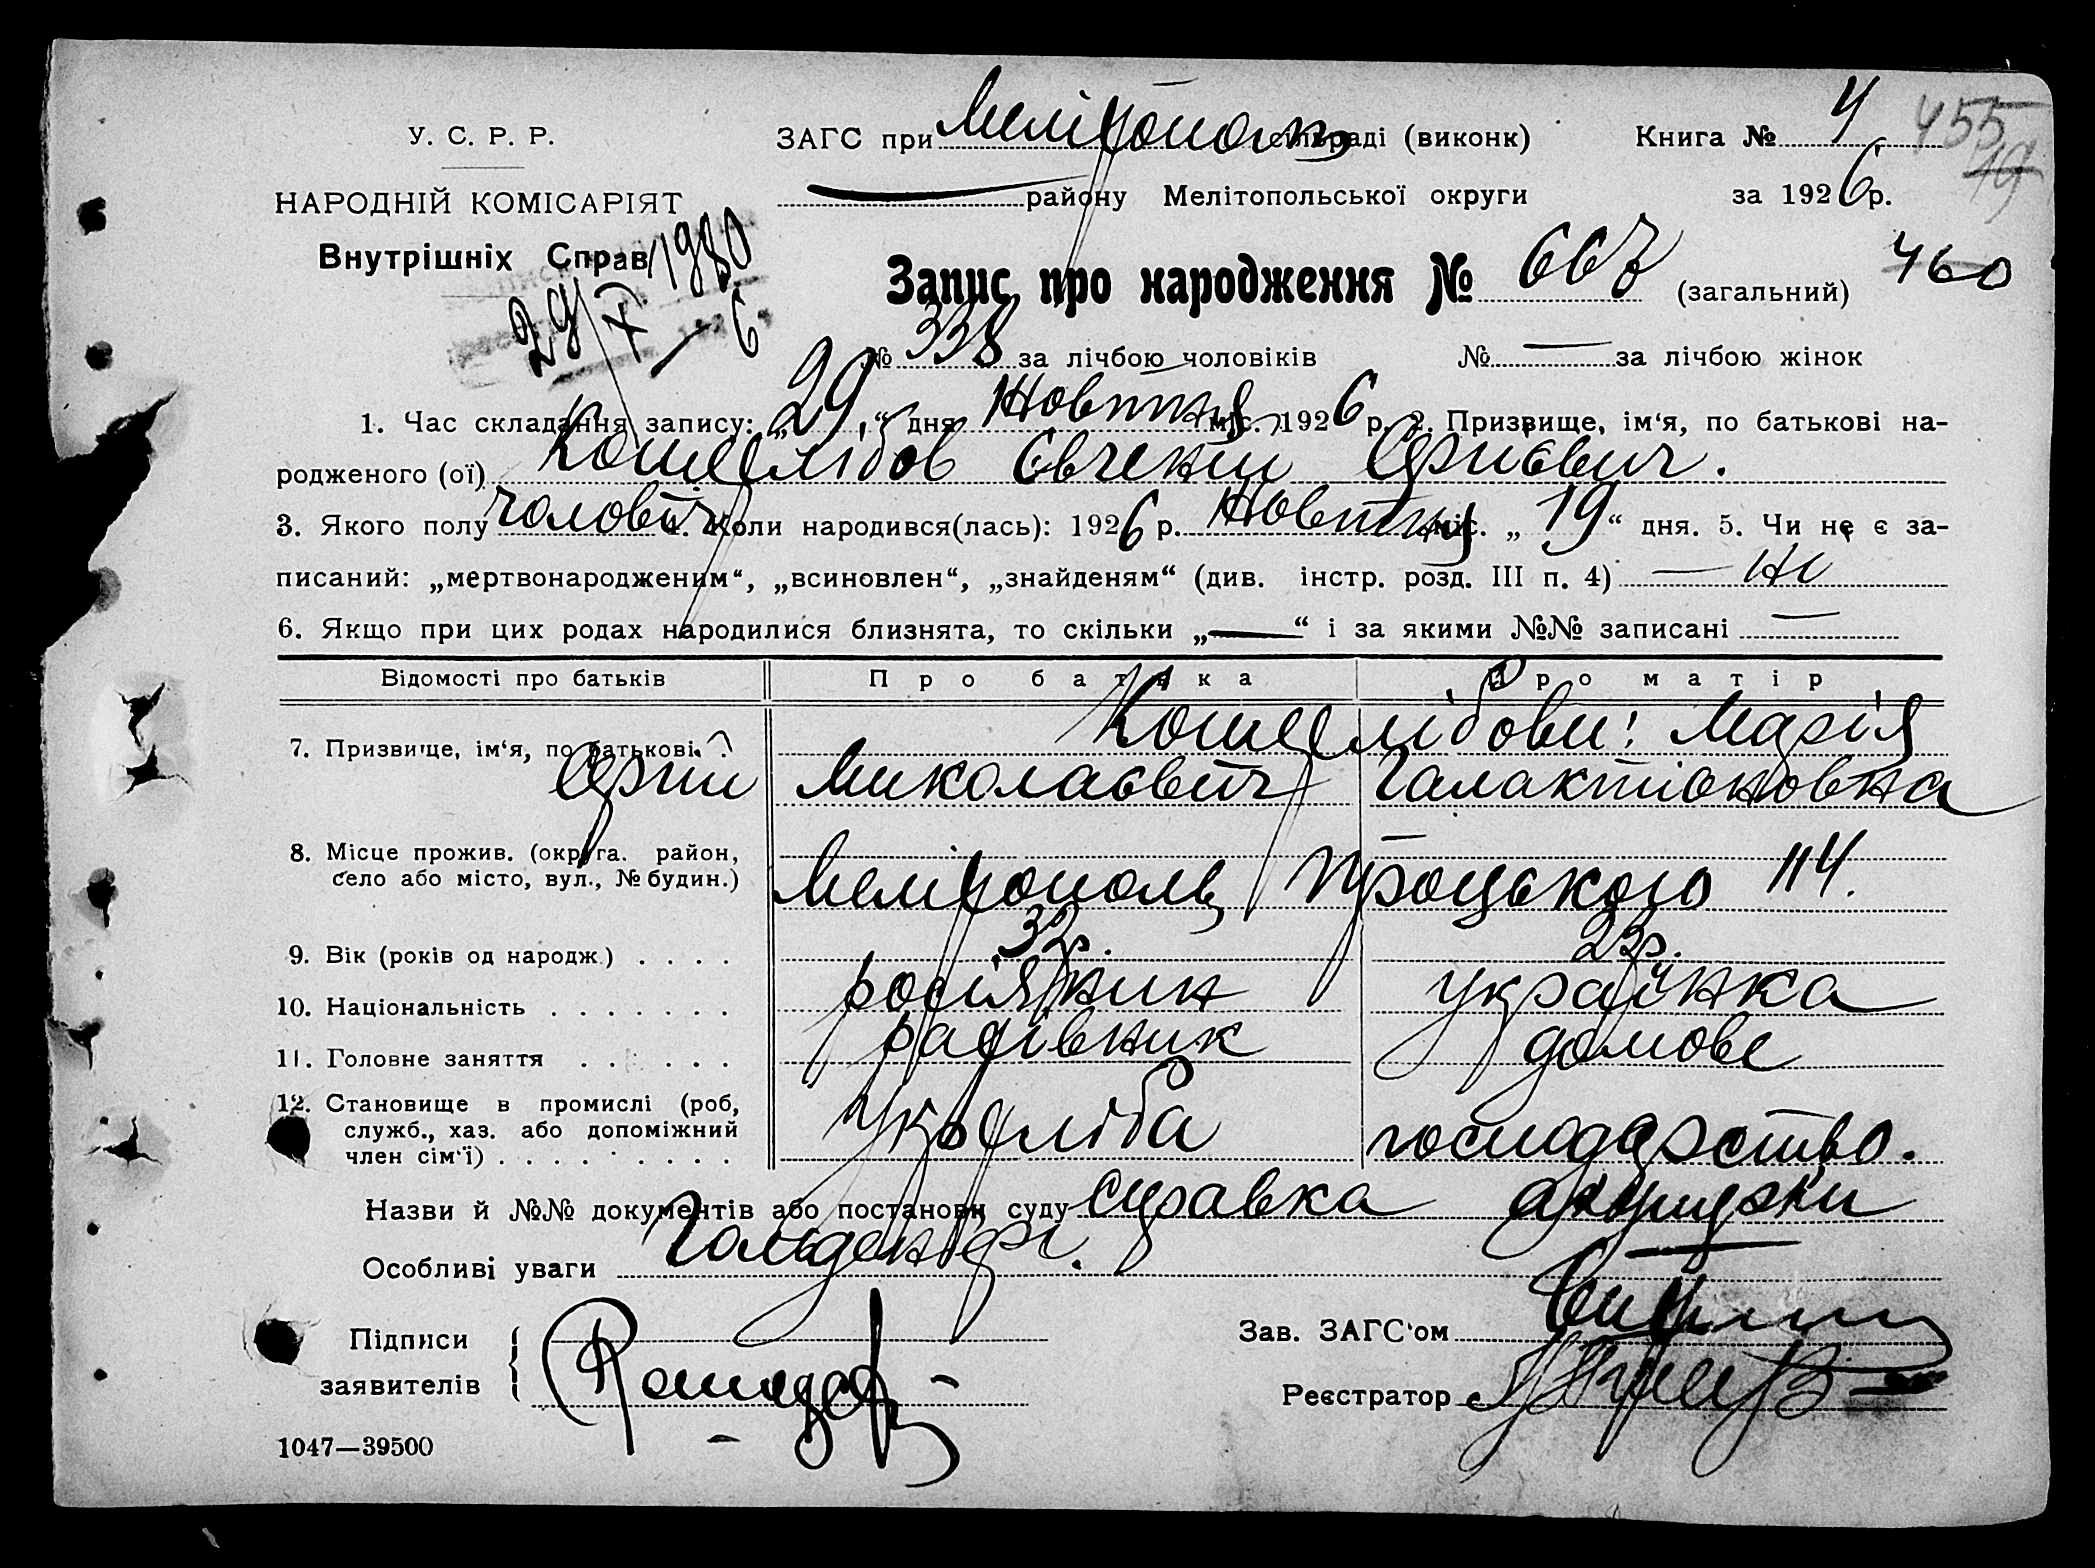 У. С. Р. Р.
НАРОДНІЙ КОМІСАРІЯТ
Внутрішніх Справ
29/X 1980
6
ЗАГС при Мелітополь сільраді (виконк)
— району Мелітопольської округи
Книга № 4
за 1926 р.
455
19
460
Запис про народження № 667 (загальний)
№ 338 за лічбою чоловіків № — за лічбою жінок
1. Час складання запису: „29“ дня Жовтня міс. 1926 р. 2. Призвище, ім‘я, по батькові на-
родженого (ої) Кошеелібов Євчений Сергієвич.
3. Якого полу чоловіч 4. Коли народився(лась): 1926 р. Жовтня міс. „19“ дня. 5. Чи не є за-
писаний: „мертвонародженим“, „всиновлен“, „знайденям“ (див. інстр. розд. III п. 4) — Ні
6. Якщо при цих родах народилися близнята, то скільки „—“ і за якими №№ записані —
Відомості про батьків Про батька Про матір
7. Призвище, ім‘я, по батькові. Кошеелібови: Марія
Сергій Миколаєвич Галактіоновна
8. Місце прожив. (округа. район,
село або місто, вул., № будин.) Мелітополь Троцького 114.
9. Вік (років од народж.) 32р. 23р.
10. Національність росіянин українка
11. Головне заняття рахівник домове
12. Становище в промислі (роб,
служб., хаз. або допоміжний
член сім‘ї) Укрхліба господарство.
Назви й №№ документів або постанови суду Справка акушерки
Гольденбергі.
Особливі уваги
Підписи
заявителів
Зав. ЗАГС‘ом
Реєстратор
1047—39500